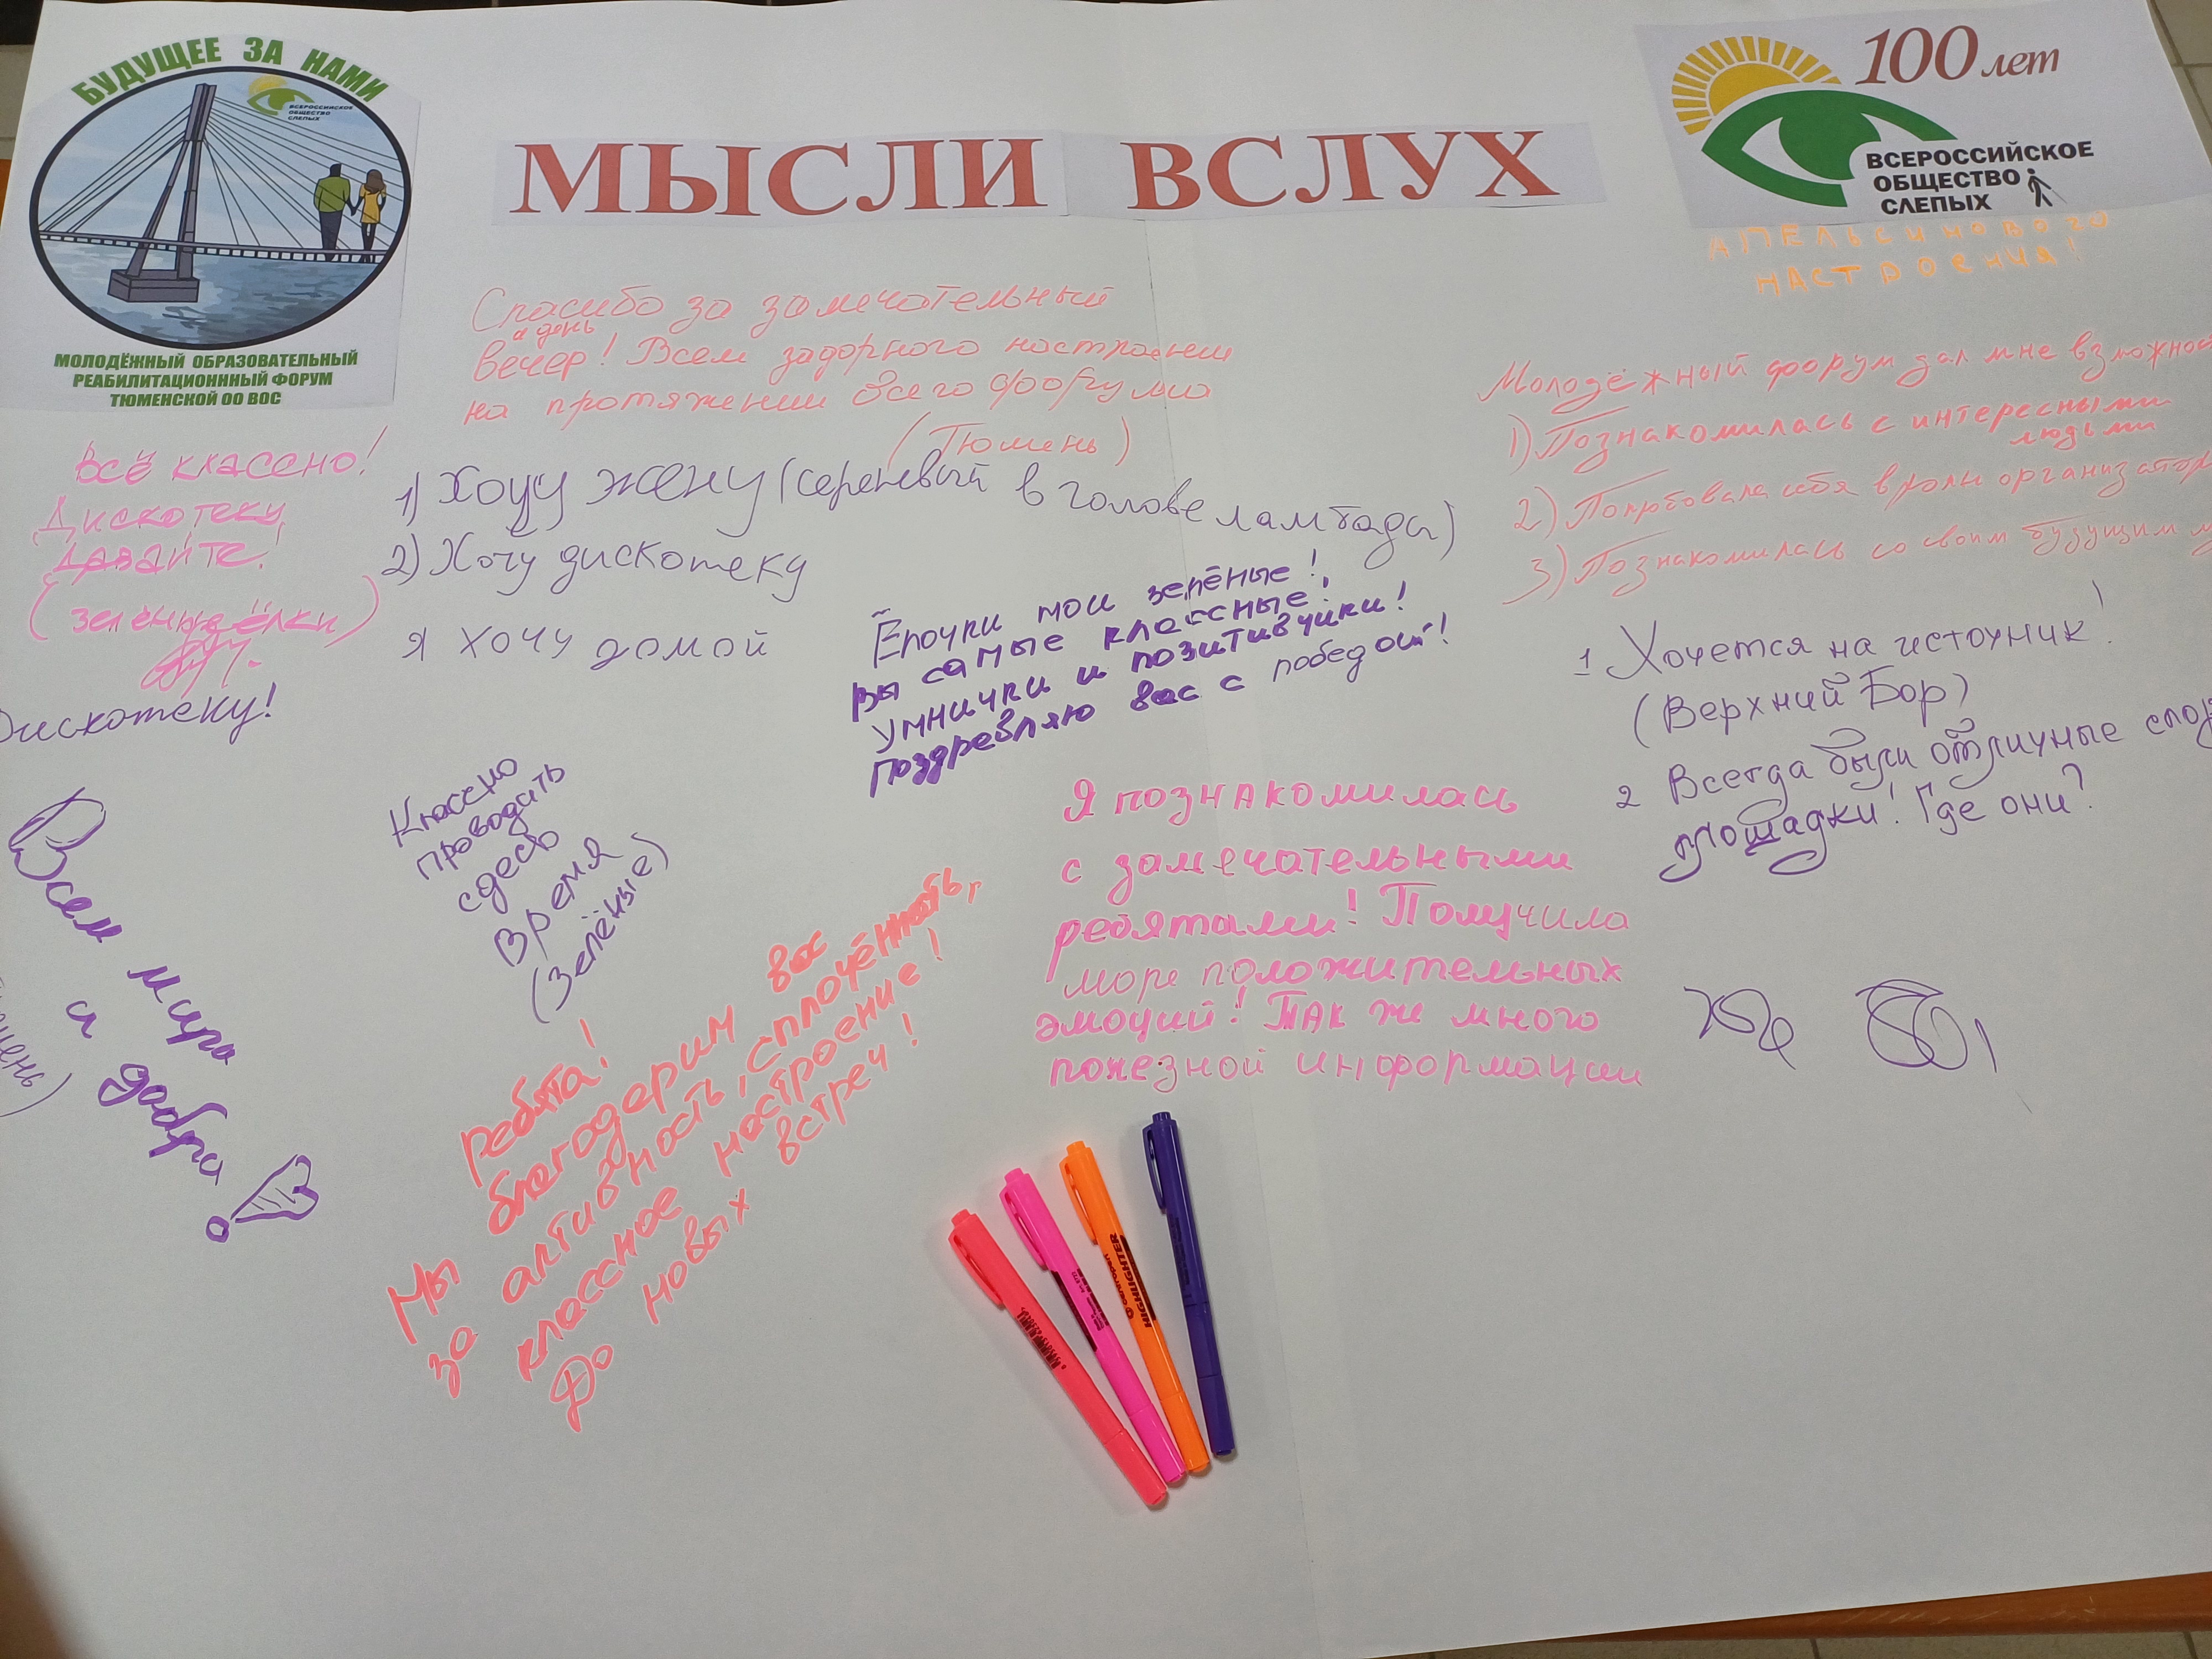 БУДУЩЕЕ ЗА НАМИ
ВСЕРОССИЙСКОЕ
ОБЩЕСТВО
СЛЕПЫХ
МОЛОДЁЖНЫЙ ОБРАЗОВАТЕЛЬНЫЙ
РЕАБИЛИТАЦИОНННЫЙ ФОРУМ
ТЮМЕНСКОЙ ОО ВОС
МЫСЛИ ВСЛУХ
100 лет
ВСЕРОССИЙСКОЕ
ОБЩЕСТВО
СЛЕПЫХ
АПЕЛЬСИНОВОГО
НАСТРОЕНИЯ!
Спасибо за замечательный
и день
вечер! Всем задорного настроения
на протяжении всего форума
(Тюмень)
Всё классно!
Дискотеку
давайте!
(зелёные ёлки)
Дискотеку!
1) Хочу жену (сереневый в голове ламбада)
2) Хочу дискотеку
я хочу домой
Ёлочки мои зелёные!
Вы самые классные!
Умнички и позитивчики!
Поздревляю вас с победой!
Молодёжный форум дал мне
1) Познакомилась с интересными
людьми
2) Попробовала себя в роли
3) Познакомилась со своим будущим
1 Хочется на источник!
(Верхний Бор)
2 Всегда были отличные
площадки! Где они?
Всем мира
и добра
Классно
проводить
сдесь
время
(Зелёные)
Ребята!
Мы благодарим вас
за активность, сплочённость,
классное настроение!
До новых встреч!
Я познакомилась
с замечательными
ребятами! Получила
море положительных
эмоций! Так же много
полезной информации
HIGHLIGHTER